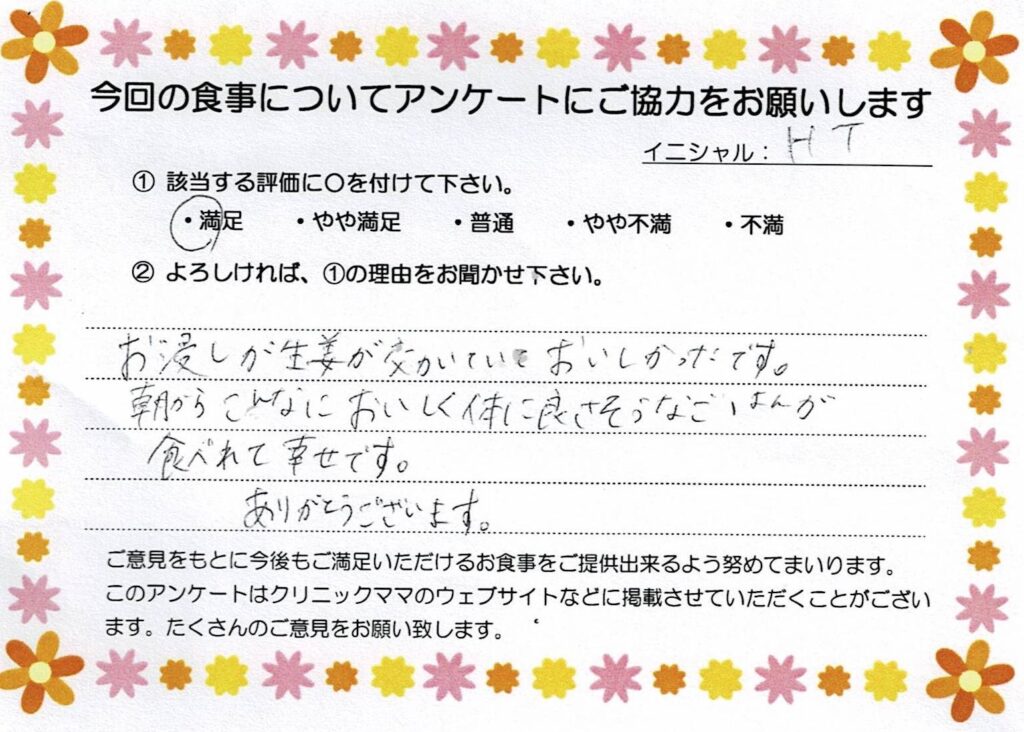 今回の食事についてアンケートにご協力をお願いします
イニシャル： HT
① 該当する評価に〇を付けて下さい。
・満足 ・やや満足 ・普通 ・やや不満 ・不満
② よろしければ、①の理由をお聞かせ下さい。
お浸しが生姜が効いていておいしかったです。
朝からこんなにおいしく体に良さそうなごはんが
食べれて幸せです。
ありがとうございます。
ご意見をもとに今後もご満足いただけるお食事をご提供出来るよう努めてまいります。
このアンケートはクリニックママのウェブサイトなどに掲載させていただくことがござい
ます。たくさんのご意見をお願い致します。